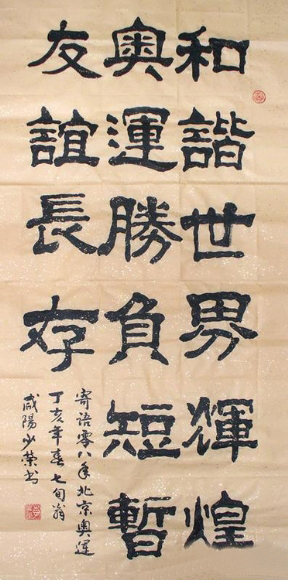 和諧世界輝煌
奧運勝負短暫
友誼長存
寄语零八年北京奥运
丁亥年春七旬翁
咸陽少榮书